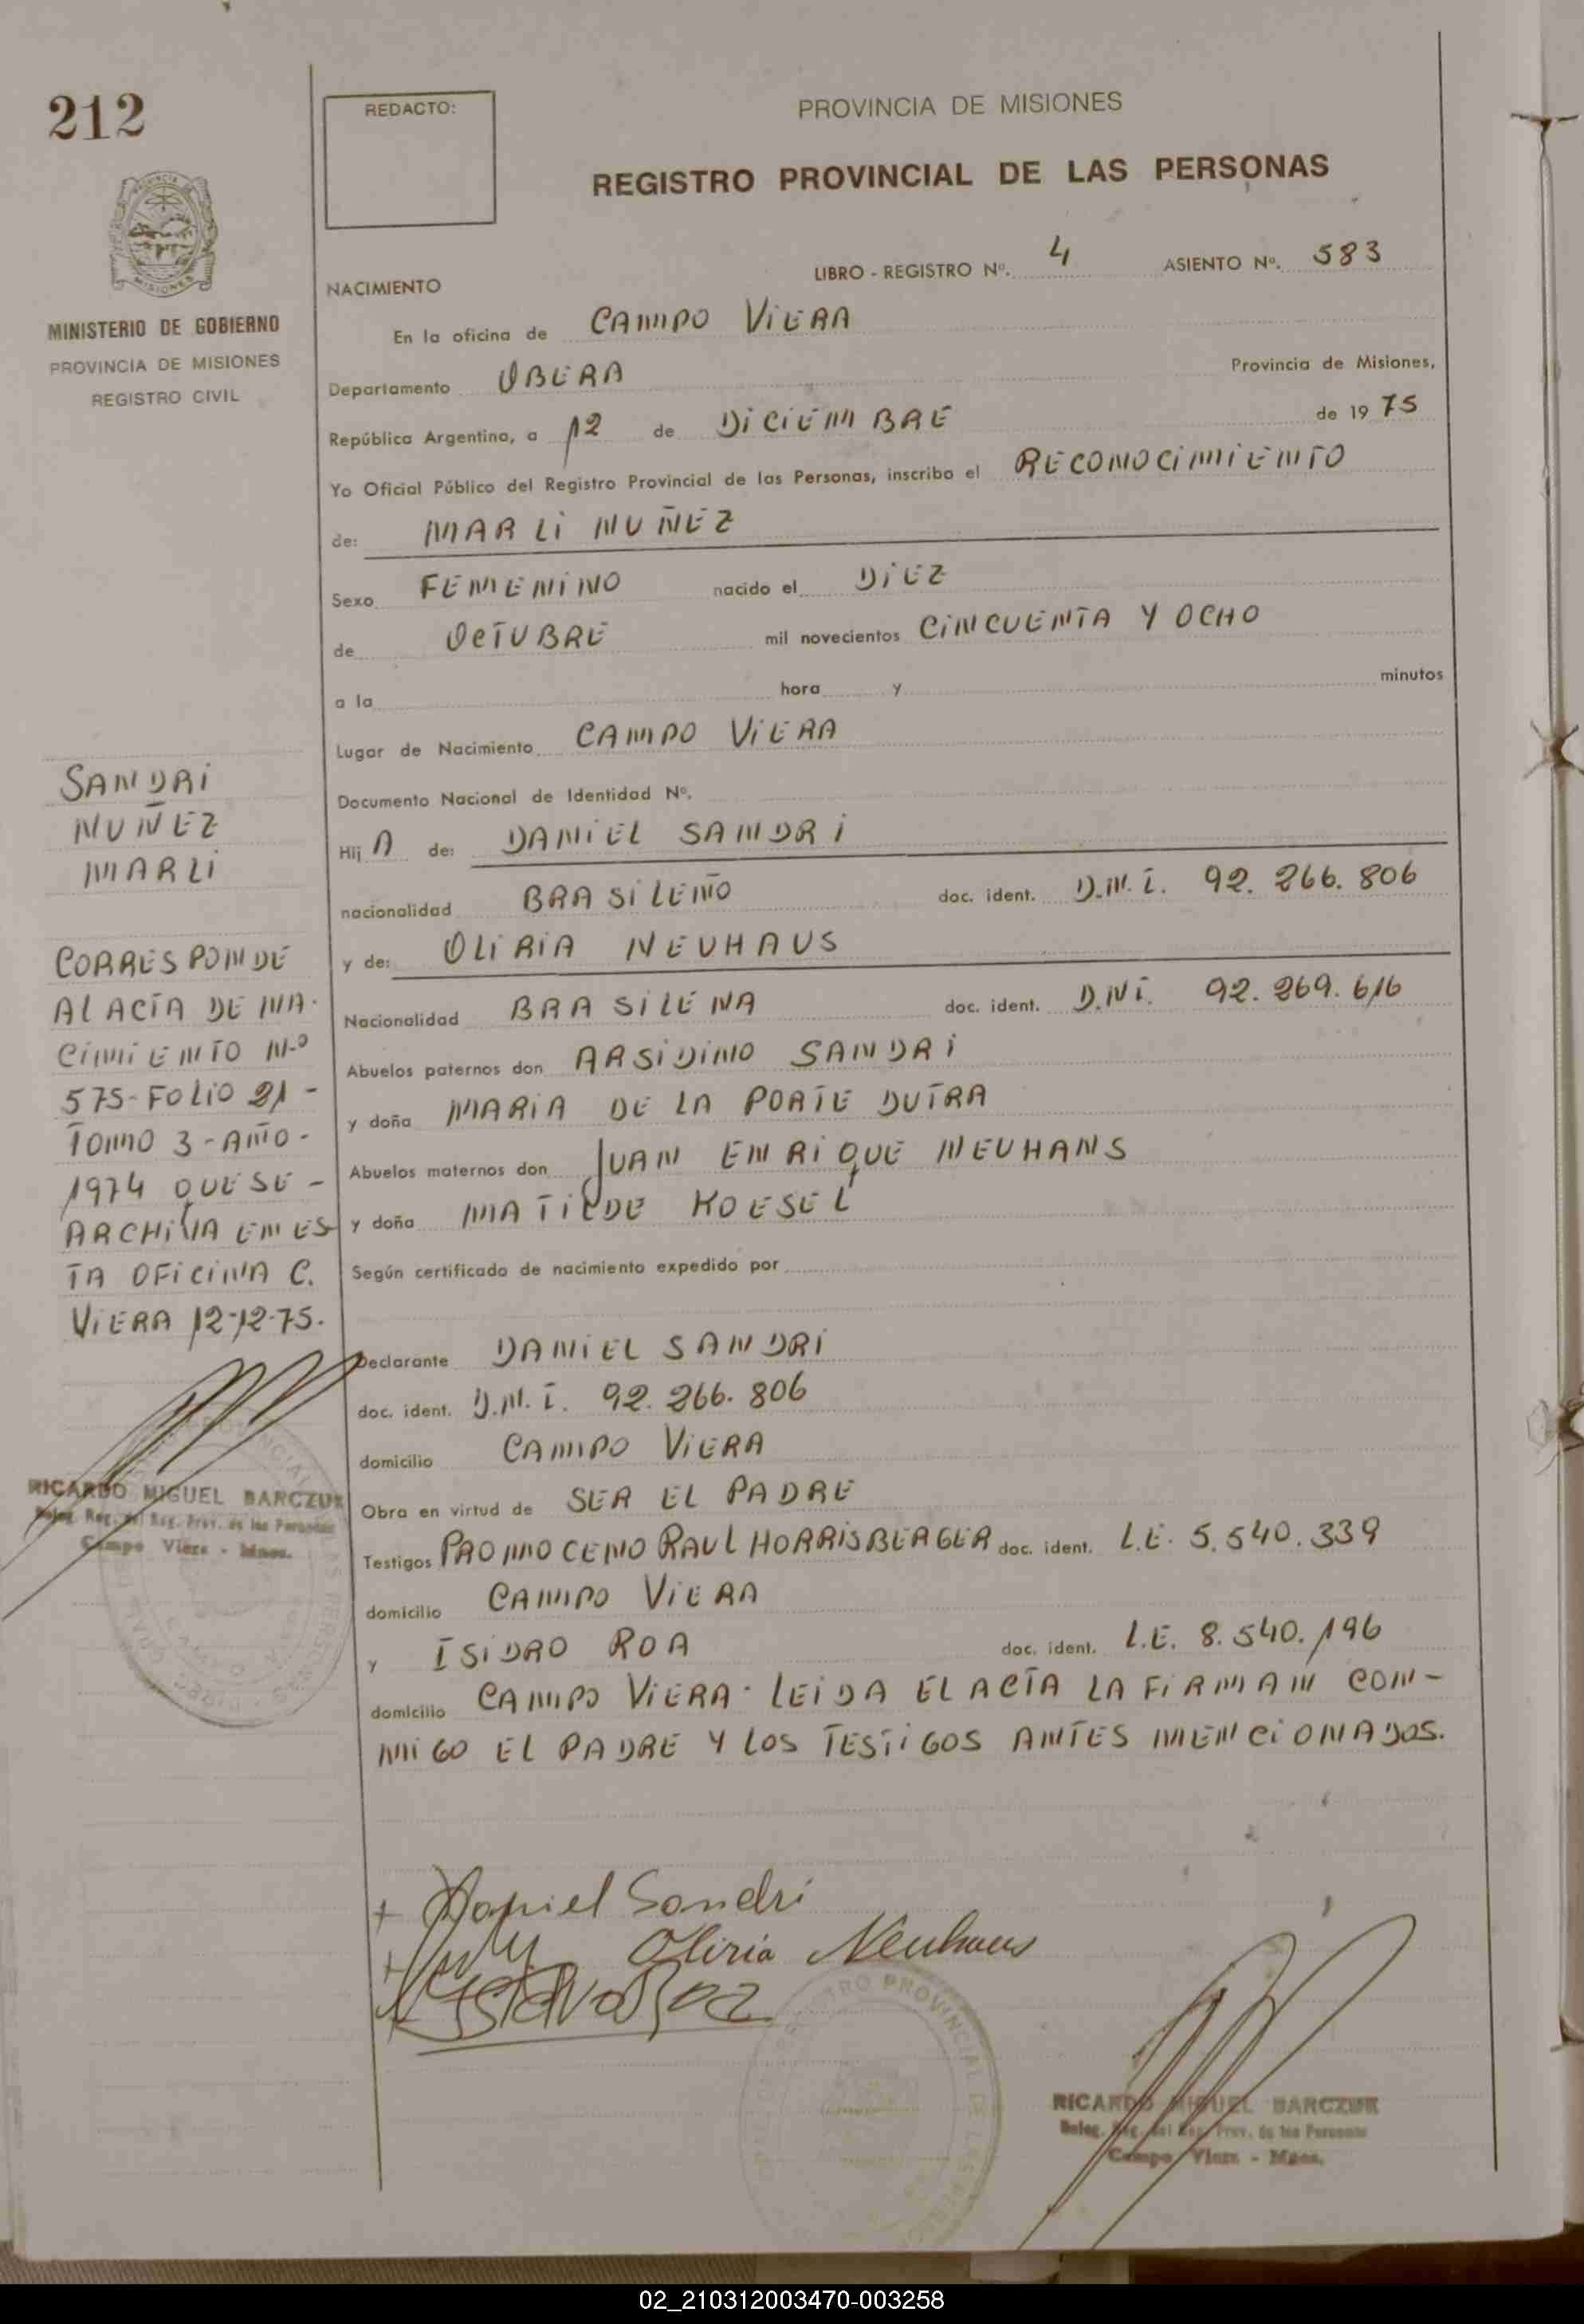 212
REDACTO:
PROVINCIA DE MISIONES
REGISTRO PROVINCIAL DE LAS PERSONAS
MINISTERIO DE GOBIERNO
PROVINCIA DE MISIONES
REGISTRO CIVIL
LIBRO - REGISTRO Nº. 4 ASIENTO Nº. 583
NACIMIENTO
En la oficina de CAMPO VIERA
Departamento OBERA Provincia de Misiones,
República Argentina, a 12 de DICIEMBRE de 1975
Yo Oficial Público del Registro Provincial de las Personas, inscribo el RECONOCIMIENTO
de: MARLI NUÑEZ
Sexo FEMENINO nacido el DIEZ
de OCTUBRE mil novecientos CINCUENTA Y OCHO
a la hora y minutos
Lugar de Nacimiento CAMPO VIERA
Documento Nacional de Identidad Nº.
Hij A de: DANIEL SANDRI
nacionalidad BRASILEÑO doc. ident. D.N.I. 92.266.806
y de: OLIRIA NEUHAUS
Nacionalidad BRASILENA doc. ident. D.NI. 92.269.616
Abuelos paternos don ARSIDINO SANDRI
y doña MARIA DE LA PORTE DUTRA
Abuelos maternos don JUAN ENRIQUE NEUHANS
y doña MATILDE KOESEL
Según certificado de nacimiento expedido por
Declarante DANIEL SANDRI
doc. ident. D.N.I. 92.266.806
domicilio CAMPO VIERA
Obra en virtud de SER EL PADRE
Testigos RAUL HORRISBERGER doc. ident. L.E. 5.540.339
domicilio CAMPO VIERA
y ISIDRO ROA doc. ident. L.E. 8.540.196
domicilio CAMPO VIERA - LEIDA EL ACTA LA FIRMAN CON-
MIGO EL PADRE Y LOS TESTIGOS ANTES MENCIONADOS.
SANDRI
NUÑEZ
MARLI
CORRESPONDE
AL ACTA DE NA-
CIMIENTO N-º
575-FOLIO 21-
TOMO 3-AÑO-
1974 QUE SE-
ARCHIVA EN ES
TA OFICINA C.
VIERA 12-12-75.
RICARDO MIGUEL BARCZUK
Deleg. Reg. del Reg. Prov. de las Personas
Campo Viera - Mnes.
Daniel Sandri
Oliria Neuhaus
RICARDO MIGUEL BARCZUK
Deleg. Reg. del Reg. Prov. de las Personas
Campo Viera - Mnes.
02_210312003470-003258